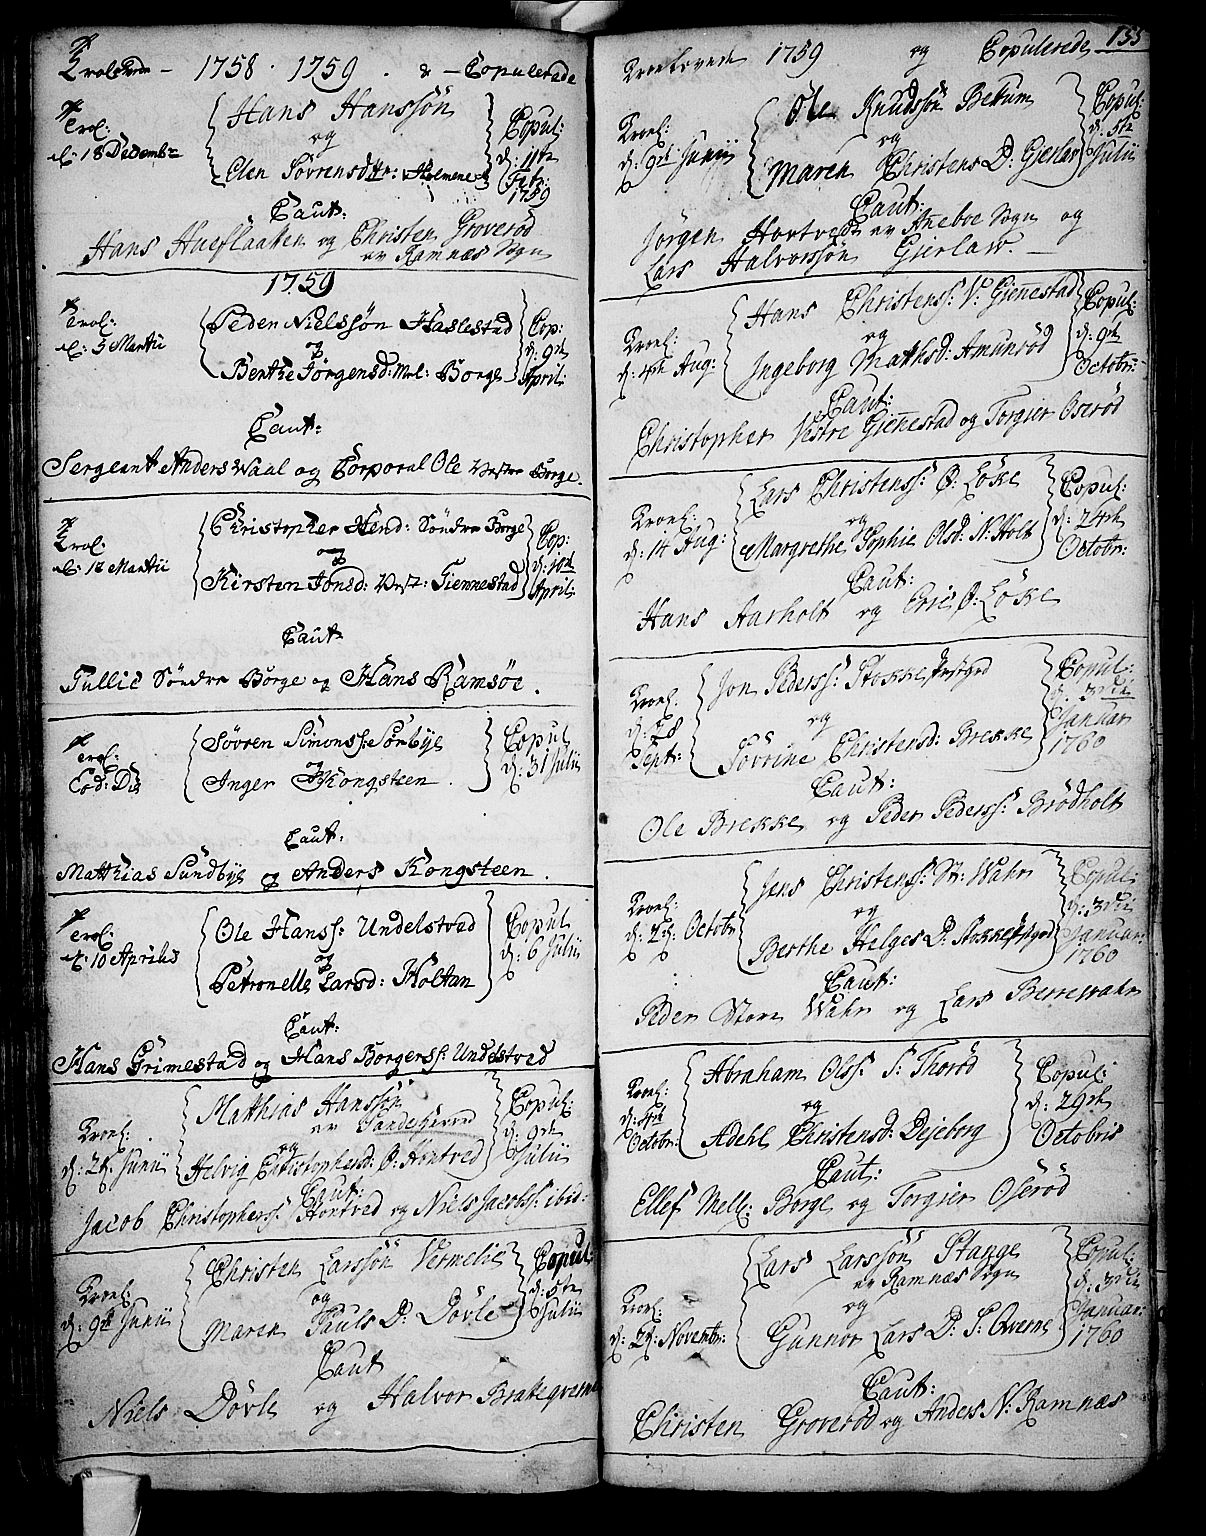 Trolovede – 1758 · 1759 . & – Copulerede
Trol:
d: 18 Decemb:
Hans Hanssøn
og
Elen Sørensdttr: Holmene
Copul:
d: 11te
Febr:
1759
Caut:
Hans Hueslaaken og Christen Groverød
ev Ramnæs Sogn
1759
Trol:
d: 5 Martii
Peder Nielssøn Haslestad
og
Berthe Jørgensd: Mel: Borge
Cop:
d: 9de
April:
Caut:
Sergeant Anders Waal og Corporal Ole Vestre Borge.
Trol:
d: 18 Martii
Christopher Hend: Søndre Borge
og
Kirsten Jonsd: Vest: Giennestad
Cop:
d: 10de
April:
Caut:
Tullie Søndre Borge og Hans Ramsøe.
Trol:
Eod: Die
Søvren Simonss: Sørbye
og
Inger Kongsteen.
Copul
d: 31 Julii
Caut:
Matthias Sundbye og Anders Kongsteen.
Trol:
d: 10 Aprilis
Ole Hanss: Undelstvad
og
Petronelle Larsd: Holtan
Copul
d: 6 Julii
Caut:
Hans Grimestad og Hans Borgerss: Undelstvad
Troel:
d: 2d: Junii
Matthias Hanssøn
ev Sandeherred
og
Helvig Christophersd: Ø: Hontved
Copul:
d: 9de
Julii
Caut:
Jacob Christopherss: Hontved og Niels Jacobss: ibid:
Troel:
d: 9de Junii
Christen Larssøn Vermelie
og
Maren Pauls D: Døvle
Copul:
d: 5te
Julii
Caut
Niels Døvle og Halvor Brakeqverne
Troelovede 1759 og Copulerede 155
Troel:
d: 9de Junii
Ole Knudssøn Bekum
og
Maren Christens D: Gierlaw
Copul:
d: 5te
Julii
Caut:
Jørgen Hortvedt ev Aneboe Sogn og
Lars Halvorssøn Gierlaw. –
Troel:
d: 4de Aug:
Hans Christenss: V: Giennestad
og
Ingeborg Mathsd: Amunrød
Copul:
d: 9de
Octobr:
Caut:
Christopher Vestre Giennestad og Torgier Oserød
Troel:
d: 14 Aug:
Lars Christenss: Ø: Løke
og
Margrethe Sophie Olsd: N: Holt
Copul:
d: 24de
Octobr:
Caut:
Hans Aarholt og Eric Ø: Løke
Troel.
d: 28
Sept:
Jon Pederss: Stokke Præstgrd
og
Søvrine Christensd: Brekke
Copul:
d: 3die
Januar
1760
Caut:
Ole Brekke og Peder Pederss: Brødholt
Troel:
d: 2d: Octobr
Jens Christenss: St: Wahr
og
Berthe Helges D: Stokke Præstgrd
Copul:
d: 3die
Januar:
1760
Caut:
Peder Store Wahr og Lars Berrewahr
Troel:
d: 4de
Octobr:
Abraham Olss: S: Thorød
og
Adehl Christensd: Dejeborg
Copul:
d: 29de
Octobris
Caut:
Ellef Mell: Borge og Torgier Oserød
Troel:
d: 2d: Novembr:
Lars Larssøn Stange
ev Ramnæs Sogn
og
Gunnor Lars D: S: Qverne
Copul:
d: 3die
Januar:
1760
Caut:
Christen Groverød og Anders N: Ramnæs